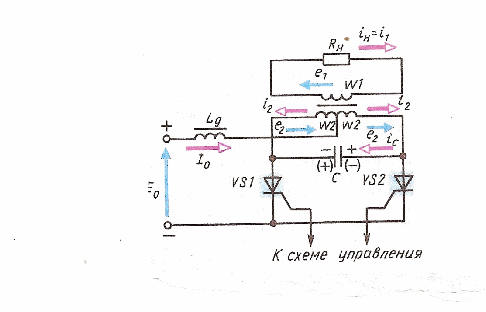 Rн iн=i1
e1 W1
i2 i2
Lд e2 W2 W2 e2
+ − + iс
I0 (+) C (−)
E0 VS1 VS2
−
К схеме управления